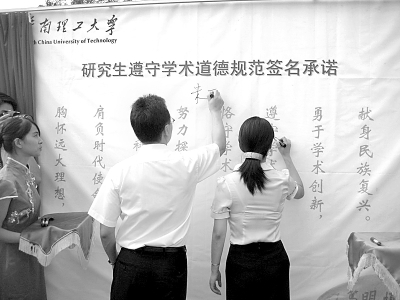 南理工大学
China University of Technology
研究生遵守学术道德规范签名承诺
献身民族复兴。
勇于学术创新，
遵
恪守学术
努力探
肩负时代使
胸怀远大理想，